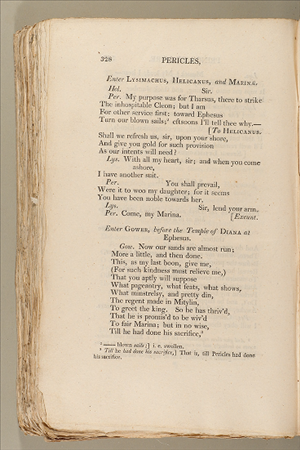 328 PERICLES,
Enter LYSIMACHUS, HELICANUS, and MARINA.
Hel. Sir.
Per. My purpose was for Tharsus, there to strike
The inhospitable Cleon; but I am
For other service first: toward Ephesus
Turn our blown sails;¹ eftsoons I'll tell thee why.—
[To HELICANUS.
Shall we refresh us, sir, upon your shore,
And give you gold for such provision
As our intents will need?
Lys. With all my heart, sir; and when you come
ashore,
I have another suit.
Per. You shall prevail,
Were it to woo my daughter; for it seems
You have been noble towards her.
Lys. Sir, lend your arm.
Per. Come, my Marina. [Exeunt.
Enter GOWER, before the Temple of DIANA at
Ephesus.
Gow. Now our sands are almost run;
More a little, and then done.
This, as my last boon, give me,
(For such kindness must relieve me,)
That you aptly will suppose
What pageantry, what feats, what shows,
What minstrelsy, and pretty din,
The regent made in Mitylin,
To greet the king. So he has thriv'd,
That he is promis'd to be wiv'd
To fair Marina; but in no wise,
Till he had done his sacrifice,²
¹ —— blown sails;] i. e. swollen.
² Till he had done his sacrifice,] That is, till Pericles had done
his sacrifice.